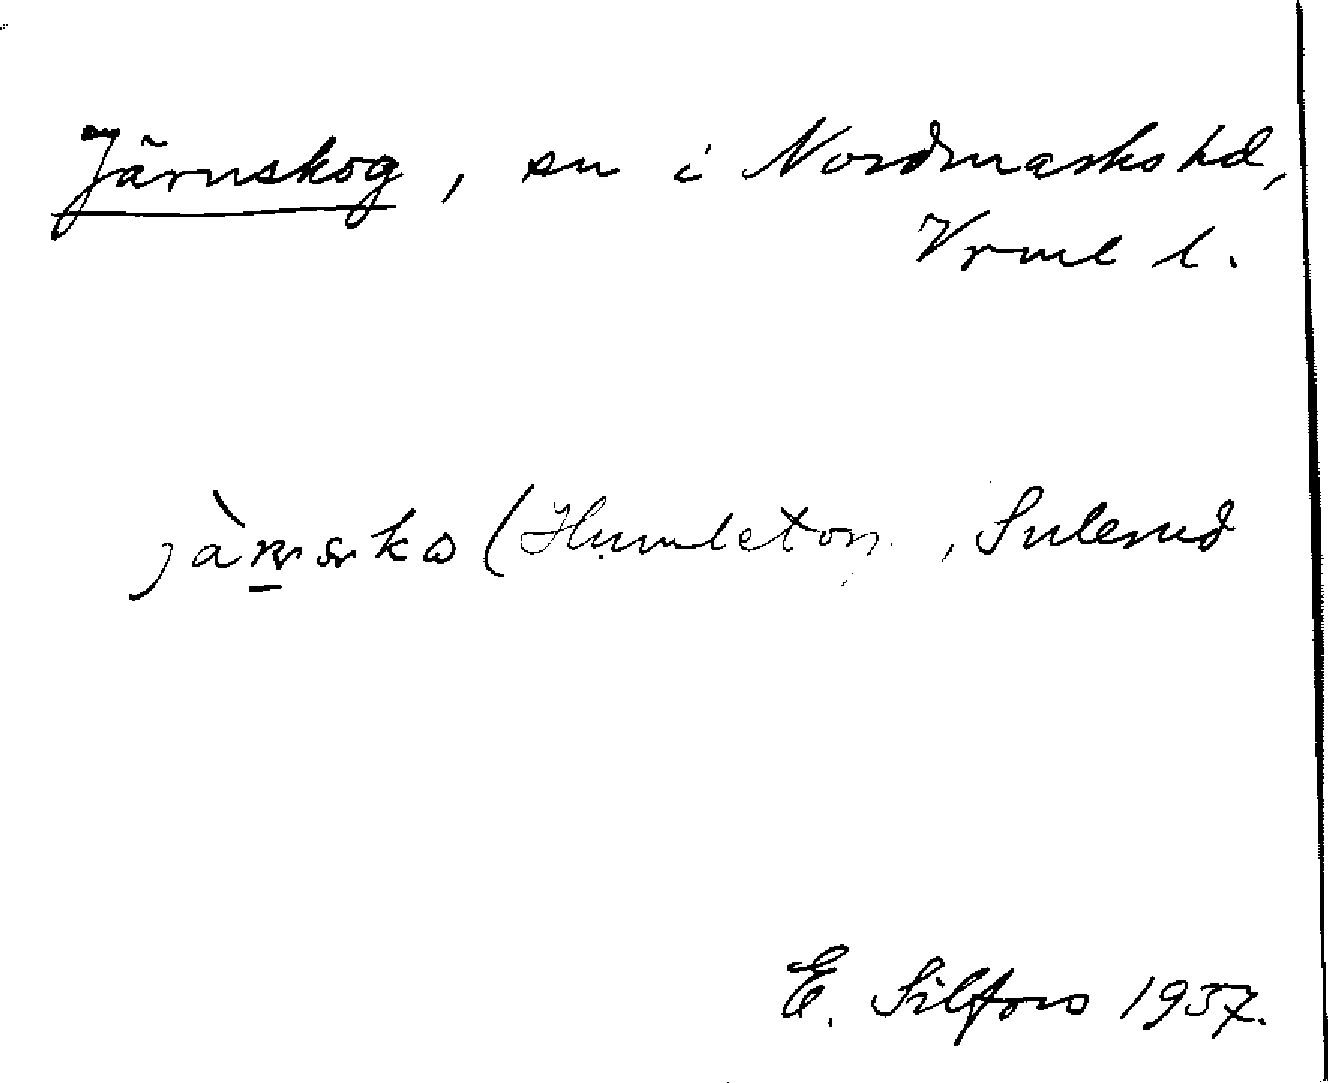 Järnskog, sn i Nordmarks hd,
Vrml l.
(Humletorp, Sulerud
E. Silfors 1937.